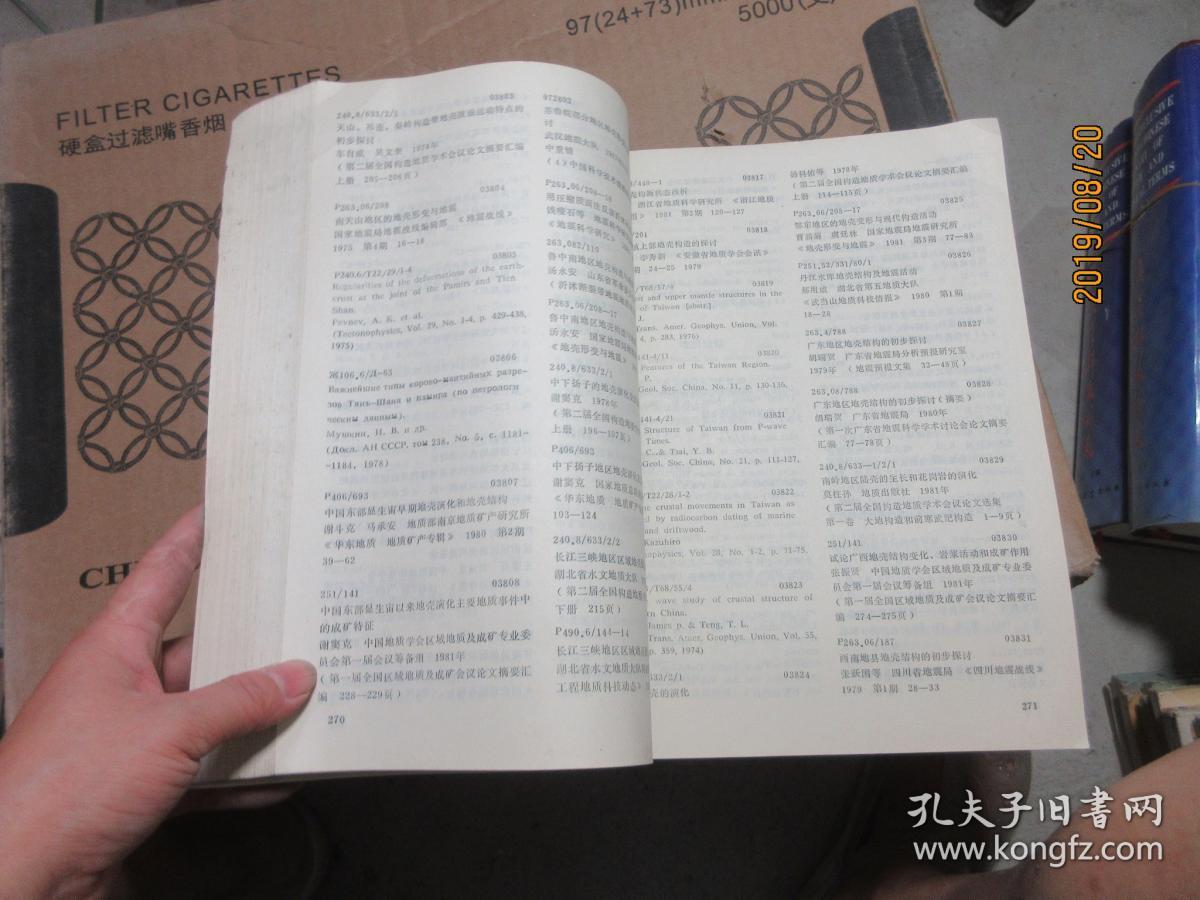 97(24+73)m
5000(支
FILTER CIGARETTES
硬盒过滤嘴香烟
CH
03803
240.8/633/2/1
初步探讨
车自成 吴文奎 1978年
(第二届全国构造地质学术会议论文摘要汇编
上册 205—206页)
03804
P263.06/208
南天山地区的地壳形变与地震
国家地震局地震战线编辑部 《地震战线》
1975 第4期 16—18
03805
P240.6/T22/29/1-4
Regularities of the deformations of the earth-
crust at the joint of the Pamirs and Tien
Shan.
Pevnev, A. K. et al.
(Tectonophysics, Vol. 29, No. 1-4, p. 429-438,
1975)
03806
Ж106.6/Д-63
Важнейшие типы корово-мантийных разре-
зов Тянь-Шаня и памира (по петрологи-
ческим данным).
Мушкин, И. В. и др.
(Докл. АН СССР, том 238, No. 5, с. 1181-
-1184, 1978)
03807
P406/693
中国东部显生宙早期地壳演化和地壳结构
谢斗克 马承安 地质部南京地质矿产研究所
《华东地质 地质矿产专辑》 1980 第2期
39—62
03808
251/141
中国东部显生宙以来地壳演化主要地质事件中
的成矿特征
谢窦克 中国地质学会区域地质及成矿专业委
员会第一届会议筹备组 1981年
(第一届全国区域地质及成矿会议论文摘要汇
编 228—229页)
270
972692
讨
武汉地质大队
中重错
(4)中国科学技术
P263.06/208
钱瑾石等 地震科学
《地震科学研究》
263.082/119
鲁中南地区地壳构造与
汤永安 山东省
(沂沭断裂带地
P263.06/208-17
鲁中南地区地壳构造
汤永安 国家地震局
《地壳形变与地震》
240.8/633/2/1
中下扬子的地壳演化
谢窦克 1978年
(第二届全国构造地质
上册 196—197页)
P406/693
中下扬子地区地壳演化
谢窦克 国家地质总局
《华东地质 地质矿产
103—124
240.8/633/2/2
长江三峡地区区域地
湖北省水文地质大队
(第二届全国构造地质
下册 215页)
P490.6/144-14
长江三峡地区区域
湖北省水文地质大队
工程地质科技动态》
/440-1
03817
浙江省地质科学研究所 《浙江地质
》 1981 第2期 120—127
/201
03818
或上部地壳构造的探讨
李秀新 《安徽省地质学会会活》
期 24—25 1979
/T68/57/4
03819
st and upper mantle structures in the
of Taiwan [abstr.]
J.
Trans. Amer. Geophys. Union, Vol.
4, p. 283, 1976)
141-4/11
03820
Features of the Taiwan Region.
P.
Geol. Soc. China, No. 11, p. 130-136,
141-4/21
03821
Structure of Taiwan from P-wave
Times.
C., & Tsai, Y. B.
Geol. Soc. China, No. 21, p. 111-127,
/T22/28/1-2
03822
he crustal movements in Taiwan as
d by radiocarbon dating of marine
and driftwood.
Kazuhiro
ophysics, Vol. 28, No. 1-2, p. 71-75.
/T68/55/4
03823
wave study of crustal structure of
rn China.
James p. & Teng, T. L.
Trans. Amer. Geophys. Union, Vol. 55,
p. 359, 1974)
633/2/1
03824
壳的演化
徐科依等 1979年
(第二届全国构造地质学术会议论文摘要汇编
上册 114—115页)
03825
P263.06/208-17
鄂东地区的地壳变形与现代构造活动
虞廷林 国家地震局地震研究所
《地壳形变与地震》 1981 第3期 77—83
03826
P251.52/331/80/1
丹江水库地壳结构及地震活动
郑用成 湖北省第五地质大队
《武当山地质科技情报》 1980 第1期
18—28
03827
263.4/788
广东地区地壳结构的初步探讨
胡瑞贺 广东省地震局分析预报研究室
1979年 (地震预报文集 32—48页)
03828
263.08/788
广东地区地壳结构的初步探讨(摘要)
胡瑞贺 广东省地震局 1980年
(第一次广东省地震科学学术讨论会论文摘要
汇编 77—78页)
03829
240.8/633-1/2/1
南岭地区陆壳的生长和花岗岩的演化
莫柱孙 地质出版社 1981年
(第二届全国构造地质学术会议论文选集
第一卷 大地构造和前寒武纪构造 1—9页)
03830
251/141
试论广西地壳结构变化、岩浆活动和成矿作用
张振贤 中国地质学会区域地质及成矿专业委
员会第一届会议筹备组 1981年
(第一届全国区域地质及成矿会议论文摘要汇
编 274—275页)
03831
P263.06/187
西南地县地壳结构的初步探讨
张跃国等 四川省地震局 《四川地震战线》
1979 第1期 28—33
271
2019/08/20
孔夫子旧书网
www.kongfz.com